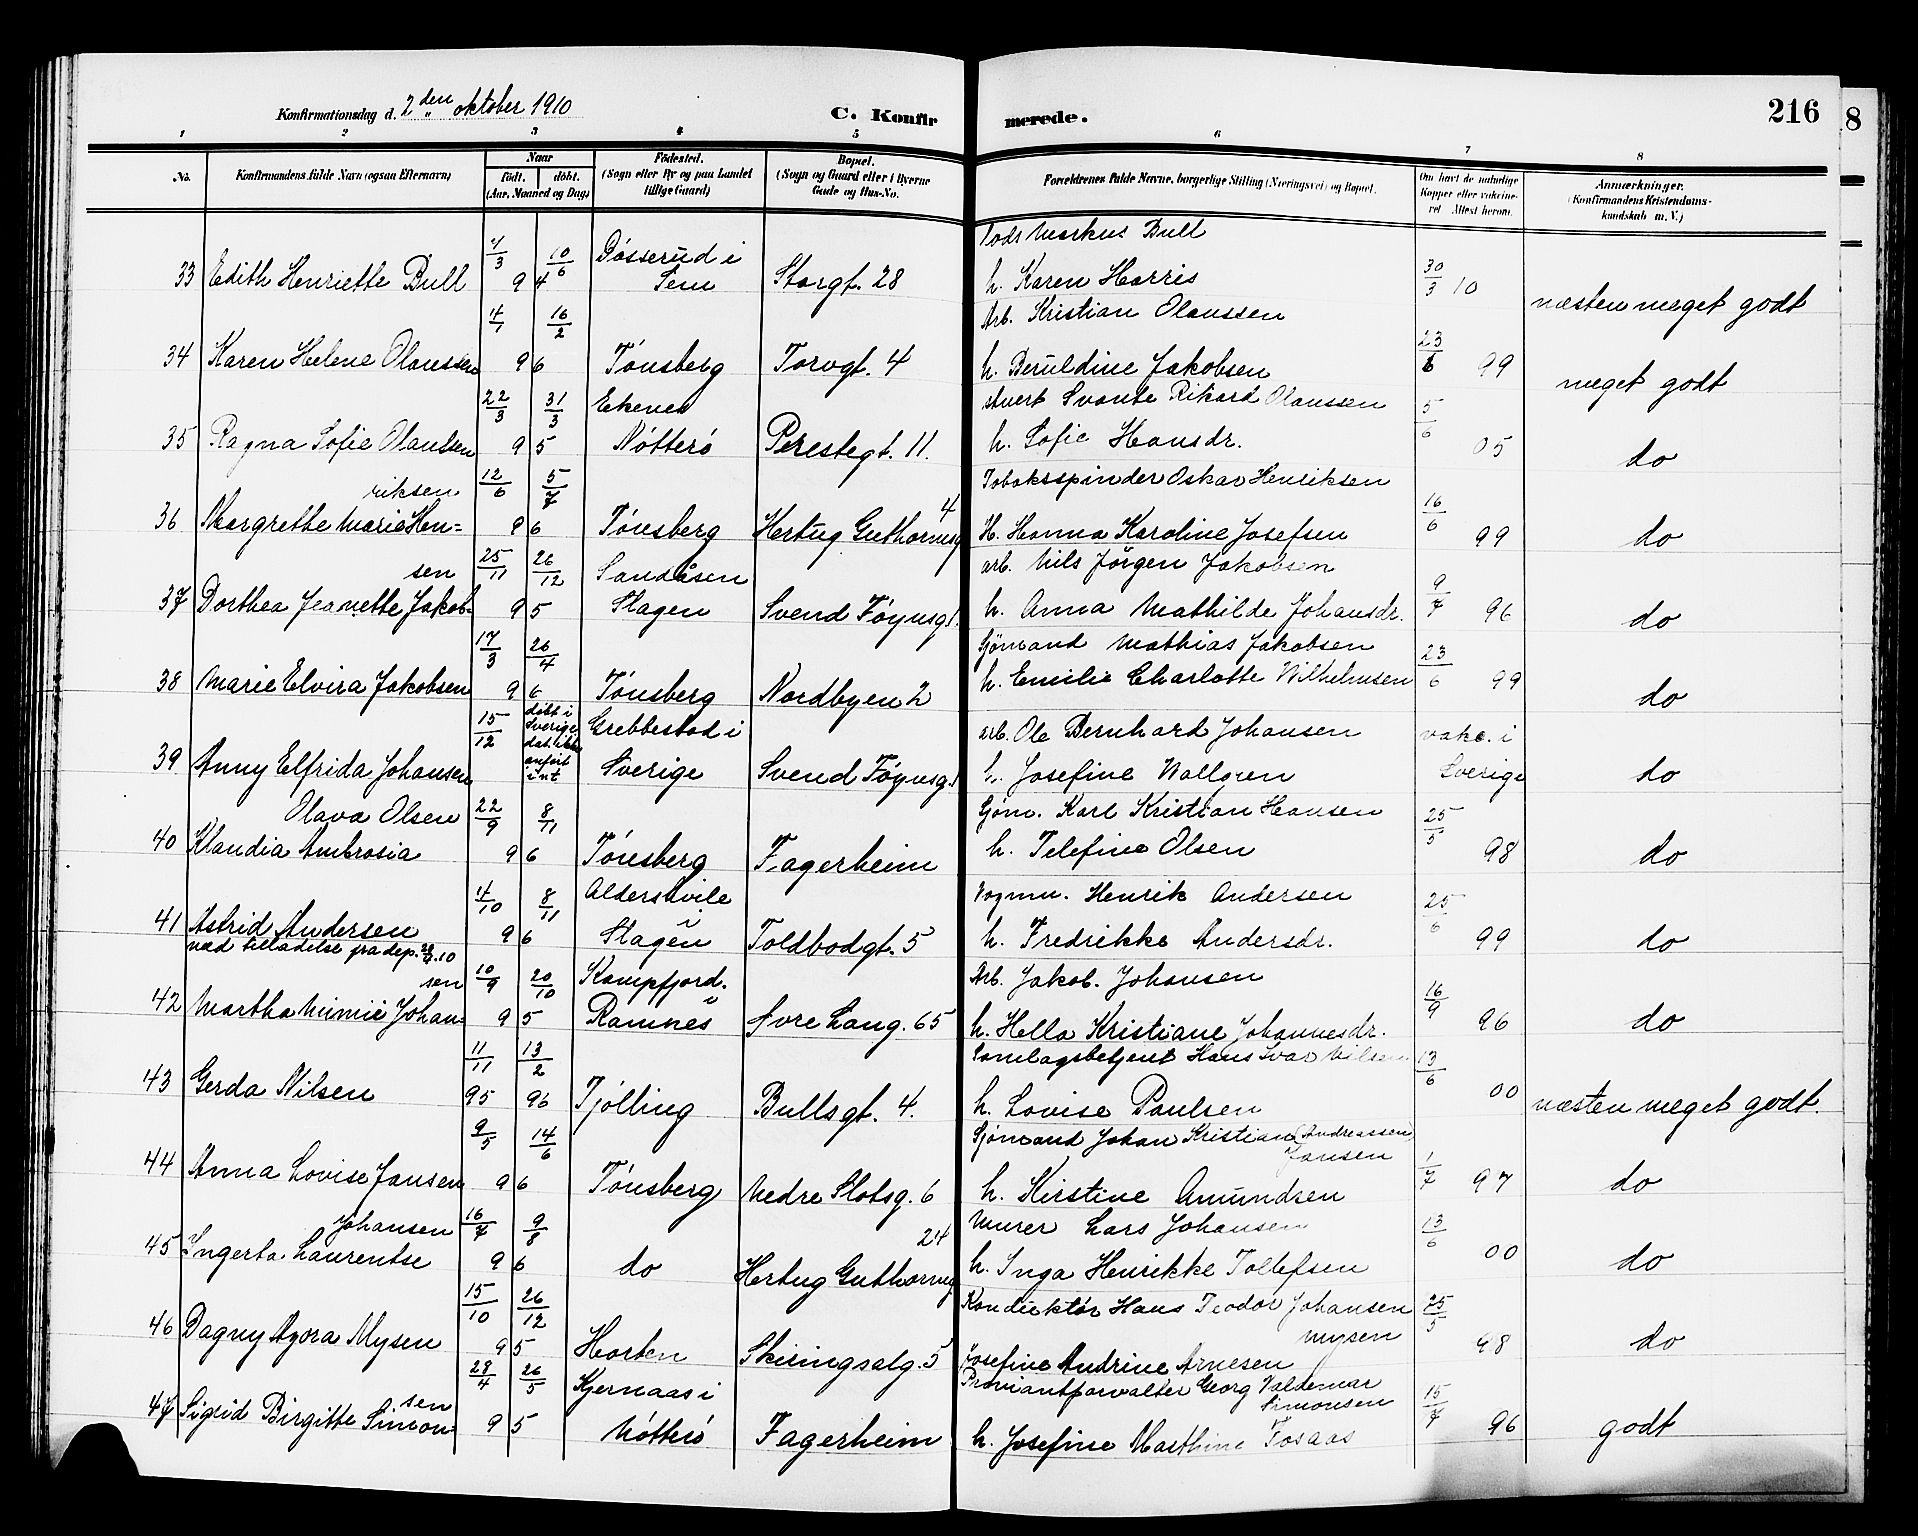 Konfirmationsdag d. 2den oktober 1910
C. Konfirmerede.
216
8
1 2 3 4 5 6 7 8
No.
Konfirmandens fulde Navn (ogsaa Efternavn)
Naar
født. døbt.
(Aar, Maaned og Dag)
Fødested.
(Sogn eller By og paa Landet
tillige Gaard)
Bopæl.
(Sogn og Gaard eller i Byerne
Gade og Hus-No.
Forældrenes fulde Navne, borgerlige Stilling (Næringsvei) og Bopæl.
Om havt de naturlige
Kopper eller vakcine-
ret Attest herom.
Anmærkninger.
(Konfirmandens Kristendoms-
kundskab m. V.)
Markus Bull
33 Edith Henriette Bull 4/3 10/6 94 Bøsserud i Sem Storgt. 28 h. Karen Harris 30/3 10 næsten meget godt
Arb. Kristian Olaussen
34 Karen Helene Olaussen 4/1 16/2 96 Tønsberg Torvgt. 4 h. Beruldine Jakobsen 23/6 99 meget godt
stuert Svante Rikard Olaussen
35 Ragna Sofie Olaussen 22/3 31/3 95 Ekenes Nøtterø Perestegt. 11. h. Sofie Hansdr. 5/6 05 do
Tobaksspinder Oskar Henriksen
36 Margrethe Marie Hen=riksen 12/6 5/7 96 Tønsberg Hertug Guthormsg 4 H. Hanna Karoline Josefsen 16/6 99 do
arb. Nils Jørgen Jakobsen
37 Dorthea Jeanette Jakob-sen 25/11 26/12 95 Sandåsen Slagen Svend Føynsg. h. Anna Mathilde Johansdr. 9/7 96 do
Sjømand Mathias Jakobsen
38 Marie Elvira Jakobsen 17/3 26/4 96 Tønsberg Nordbyen 2 h. Emilie Charlotte Vilhelmsen 23/6 99 do
arb. Ole Bernhard Johansen
39 Anny Elfrida Johansen 15/12 døbt i Sverige dat. ikke anført Grebbestad i Sverige Svend Føynsg. h. Josefine Wallgren vakc. i Sverige do
Sjøm. Karl Kristian Hansen
40 Klaudia Ambrosia Olava Olsen 22/9 8/11 96 Tønsberg Fagerheim h. Telefine Olsen 25/5 98 do
Vognm. Henrik Andersen
41 Astrid Andersen 4/10 8/11 96 Aldershvile i Slagen Toldbodgt. 5 h. Fredrikke Andersdr. 25/6 99 do
med tilladelse fra dep.
Arb. Jakob. Johansen
42 Martha Mimie Johan=sen 10/9 20/10 95 Kampfjord. i Ramnes Øvre Lang. 65 h. Hella Kristiane Johannesdr. 16/9 96 do
Samlagsbetjent Hans Ivar Nilsen
43 Gerda Nilsen 11/11 95 13/2 96 Tjølling Bullsgt. 4. h. Lovise Paulsen 13/6 00 næsten meget godt.
Sjømand Johan Kristian (Andreassen) Jansen
44 Anna Lovise Jansen 9/5 14/6 96 Tønsberg Nedre Slotsg. 6 h. Kirstine Amundsen 1/7 97 do
Murer Lars Johansen
45 Ingerta Laurentse Johansen 16/7 9/8 96 do Hertug Guthormsg 24 h. Inga Henrikke Tollefsen 13/6 00 do
Konduktør Hans Teodor Johansen Mysen
46 Dagny Agora Mysen 15/10 26/12 95 Horten Skiringsalg. 5 Josefine Andrine Arnesen 25/5 98 do
Proviantforvalter Georg Valdemar Simonsen
47 Sigrid Birgitte Simonsen 28/4 26/5 95 Kjernaas i Nøtterø Fagerheim h. Josefine Marthine Fosaas 15/7 96 godt